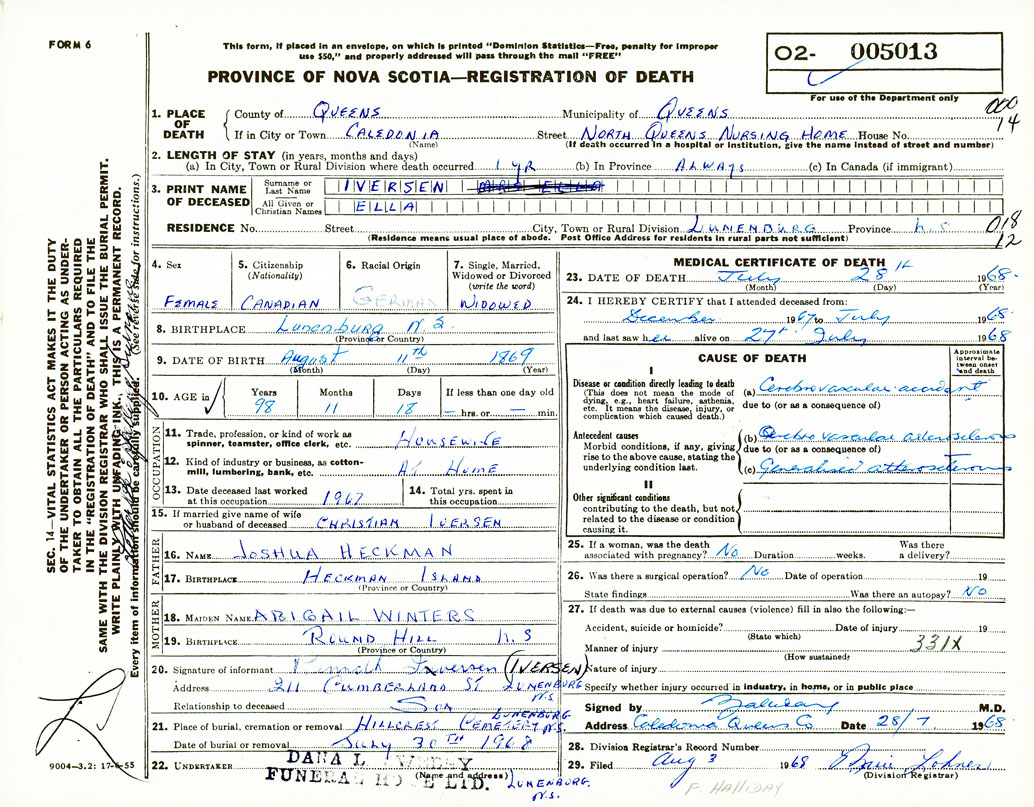 FORM 6
This form, if placed in an envelope, on which is printed "Dominion Statistics—Free, penalty for improper
use $50," and properly addressed will pass through the mail "FREE"
PROVINCE OF NOVA SCOTIA—REGISTRATION OF DEATH
O2- 005013
For use of the Department only
000
14
1. PLACE OF DEATH
County of QUEENS Municipality of QUEENS
If in City or Town CALEDONIA Street NORTH QUEENS NURSING HOME House No.
(Name) (If death occurred in a hospital or institution, give the name instead of street and number)
2. LENGTH OF STAY (in years, months and days)
(a) In City, Town or Rural Division where death occurred 1 YR (b) In Province ALWAYS (c) In Canada (if immigrant)
3. PRINT NAME OF DECEASED
Surname or Last Name IVERSEN MRS ELLA
All Given or Christian Names ELLA
RESIDENCE No. Street City, Town or Rural Division LUNENBURG Province N.S
(Residence means usual place of abode. Post Office Address for residents in rural parts not sufficient)
018
12
4. Sex FEMALE
5. Citizenship (Nationality) CANADIAN
6. Racial Origin GERMAN
7. Single, Married, Widowed or Divorced (write the word) WIDOWED
8. BIRTHPLACE Lunenburg N S
(Province or Country)
9. DATE OF BIRTH August 11th 1869
(Month) (Day) (Year)
10. AGE in Years Months Days If less than one day
98 11 18 — hrs. or — min.
OCCUPATION
11. Trade, profession, or kind of work as spinner, teamster, office clerk, etc. HOUSEWIFE
12. Kind of industry or business, as cotton-mill, lumbering, bank, etc. AT HOME
13. Date deceased last worked at this occupation 1967
14. Total yrs. spent in this occupation
15. If married give name of wife or husband of deceased CHRISTIAN IVERSEN
FATHER
16. NAME JOSHUA HECKMAN
17. BIRTHPLACE HECKMAN ISLAND
(Province or Country)
MOTHER
18. MAIDEN NAME ABIGAIL WINTERS
19. BIRTHPLACE ROUND HILL N.S
(Province or Country)
20. Signature of informant Iversen (IVERSEN)
Address 211 CUMBERLAND ST LUNENBURG N.S.
Relationship to deceased SON
21. Place of burial, cremation or removal HILLCREST CEMETERY LUNENBURG N.S.
Date of burial or removal JULY 30TH 1968
22. UNDERTAKER DANA L SWEENY
FUNERAL HOME LTD. LUNENBURG, N.S.
(Name and address)
MEDICAL CERTIFICATE OF DEATH
23. DATE OF DEATH July 28th 1968
(Month) (Day) (Year)
24. I HEREBY CERTIFY that I attended deceased from:
December 1967 to July 1968
and last saw her alive on 27th July 1968
CAUSE OF DEATH
Approximate interval between onset and death
I
Disease or condition directly leading to death
(This does not mean the mode of dying, e.g., heart failure, asthenia, etc. It means the disease, injury, or complication which caused death.)
(a) Cerebrovascular accident
due to (or as a consequence of)
Antecedent causes
Morbid conditions, if any, giving rise to the above cause, stating the underlying condition last.
(b) Cerebro vascular arterosclerosis
due to (or as a consequence of)
(c) Generalised atherosclerosis
II
Other significant conditions
contributing to the death, but not related to the disease or condition causing it.
25. If a woman, was the death associated with pregnancy? No Duration weeks. Was there a delivery?
26. Was there a surgical operation? No Date of operation 19
State findings Was there an autopsy? NO
27. If death was due to external causes (violence) fill in also the following:—
Accident, suicide or homicide? Date of injury 19
(State which)
Manner of injury 331X
(How sustained)
Nature of injury
Specify whether injury occurred in industry, in home, or in public place
Signed by Halliday M.D.
Address Caledonia Queens Co Date 28/7 1968
28. Division Registrar's Record Number
29. Filed Aug 3 1968
(Division Registrar)
F. HALLIDAY
9004—3.2: 17-6-55
SEC. 14—VITAL STATISTICS ACT MAKES IT THE DUTY
OF THE UNDERTAKER OR PERSON ACTING AS UNDER-
TAKER TO OBTAIN ALL THE PARTICULARS REQUIRED
IN THE "REGISTRATION OF DEATH" AND TO FILE THE
SAME WITH THE DIVISION REGISTRAR WHO SHALL ISSUE THE BURIAL PERMIT.
WRITE PLAINLY WITH UNFADING INK, THIS IS A PERMANENT RECORD.
Every item of information should be carefully supplied. (See reverse side for instructions.)